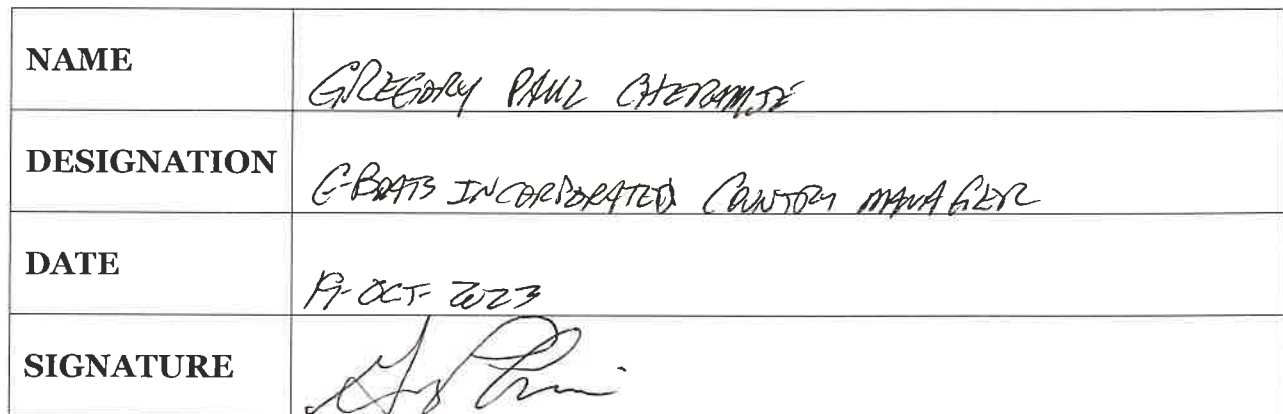 NAME
GREGORY PAUL CHERAMIE
DESIGNATION
G-BOATS INCORPORATED COUNTRY MANAGER
DATE
19-OCT-2023
SIGNATURE